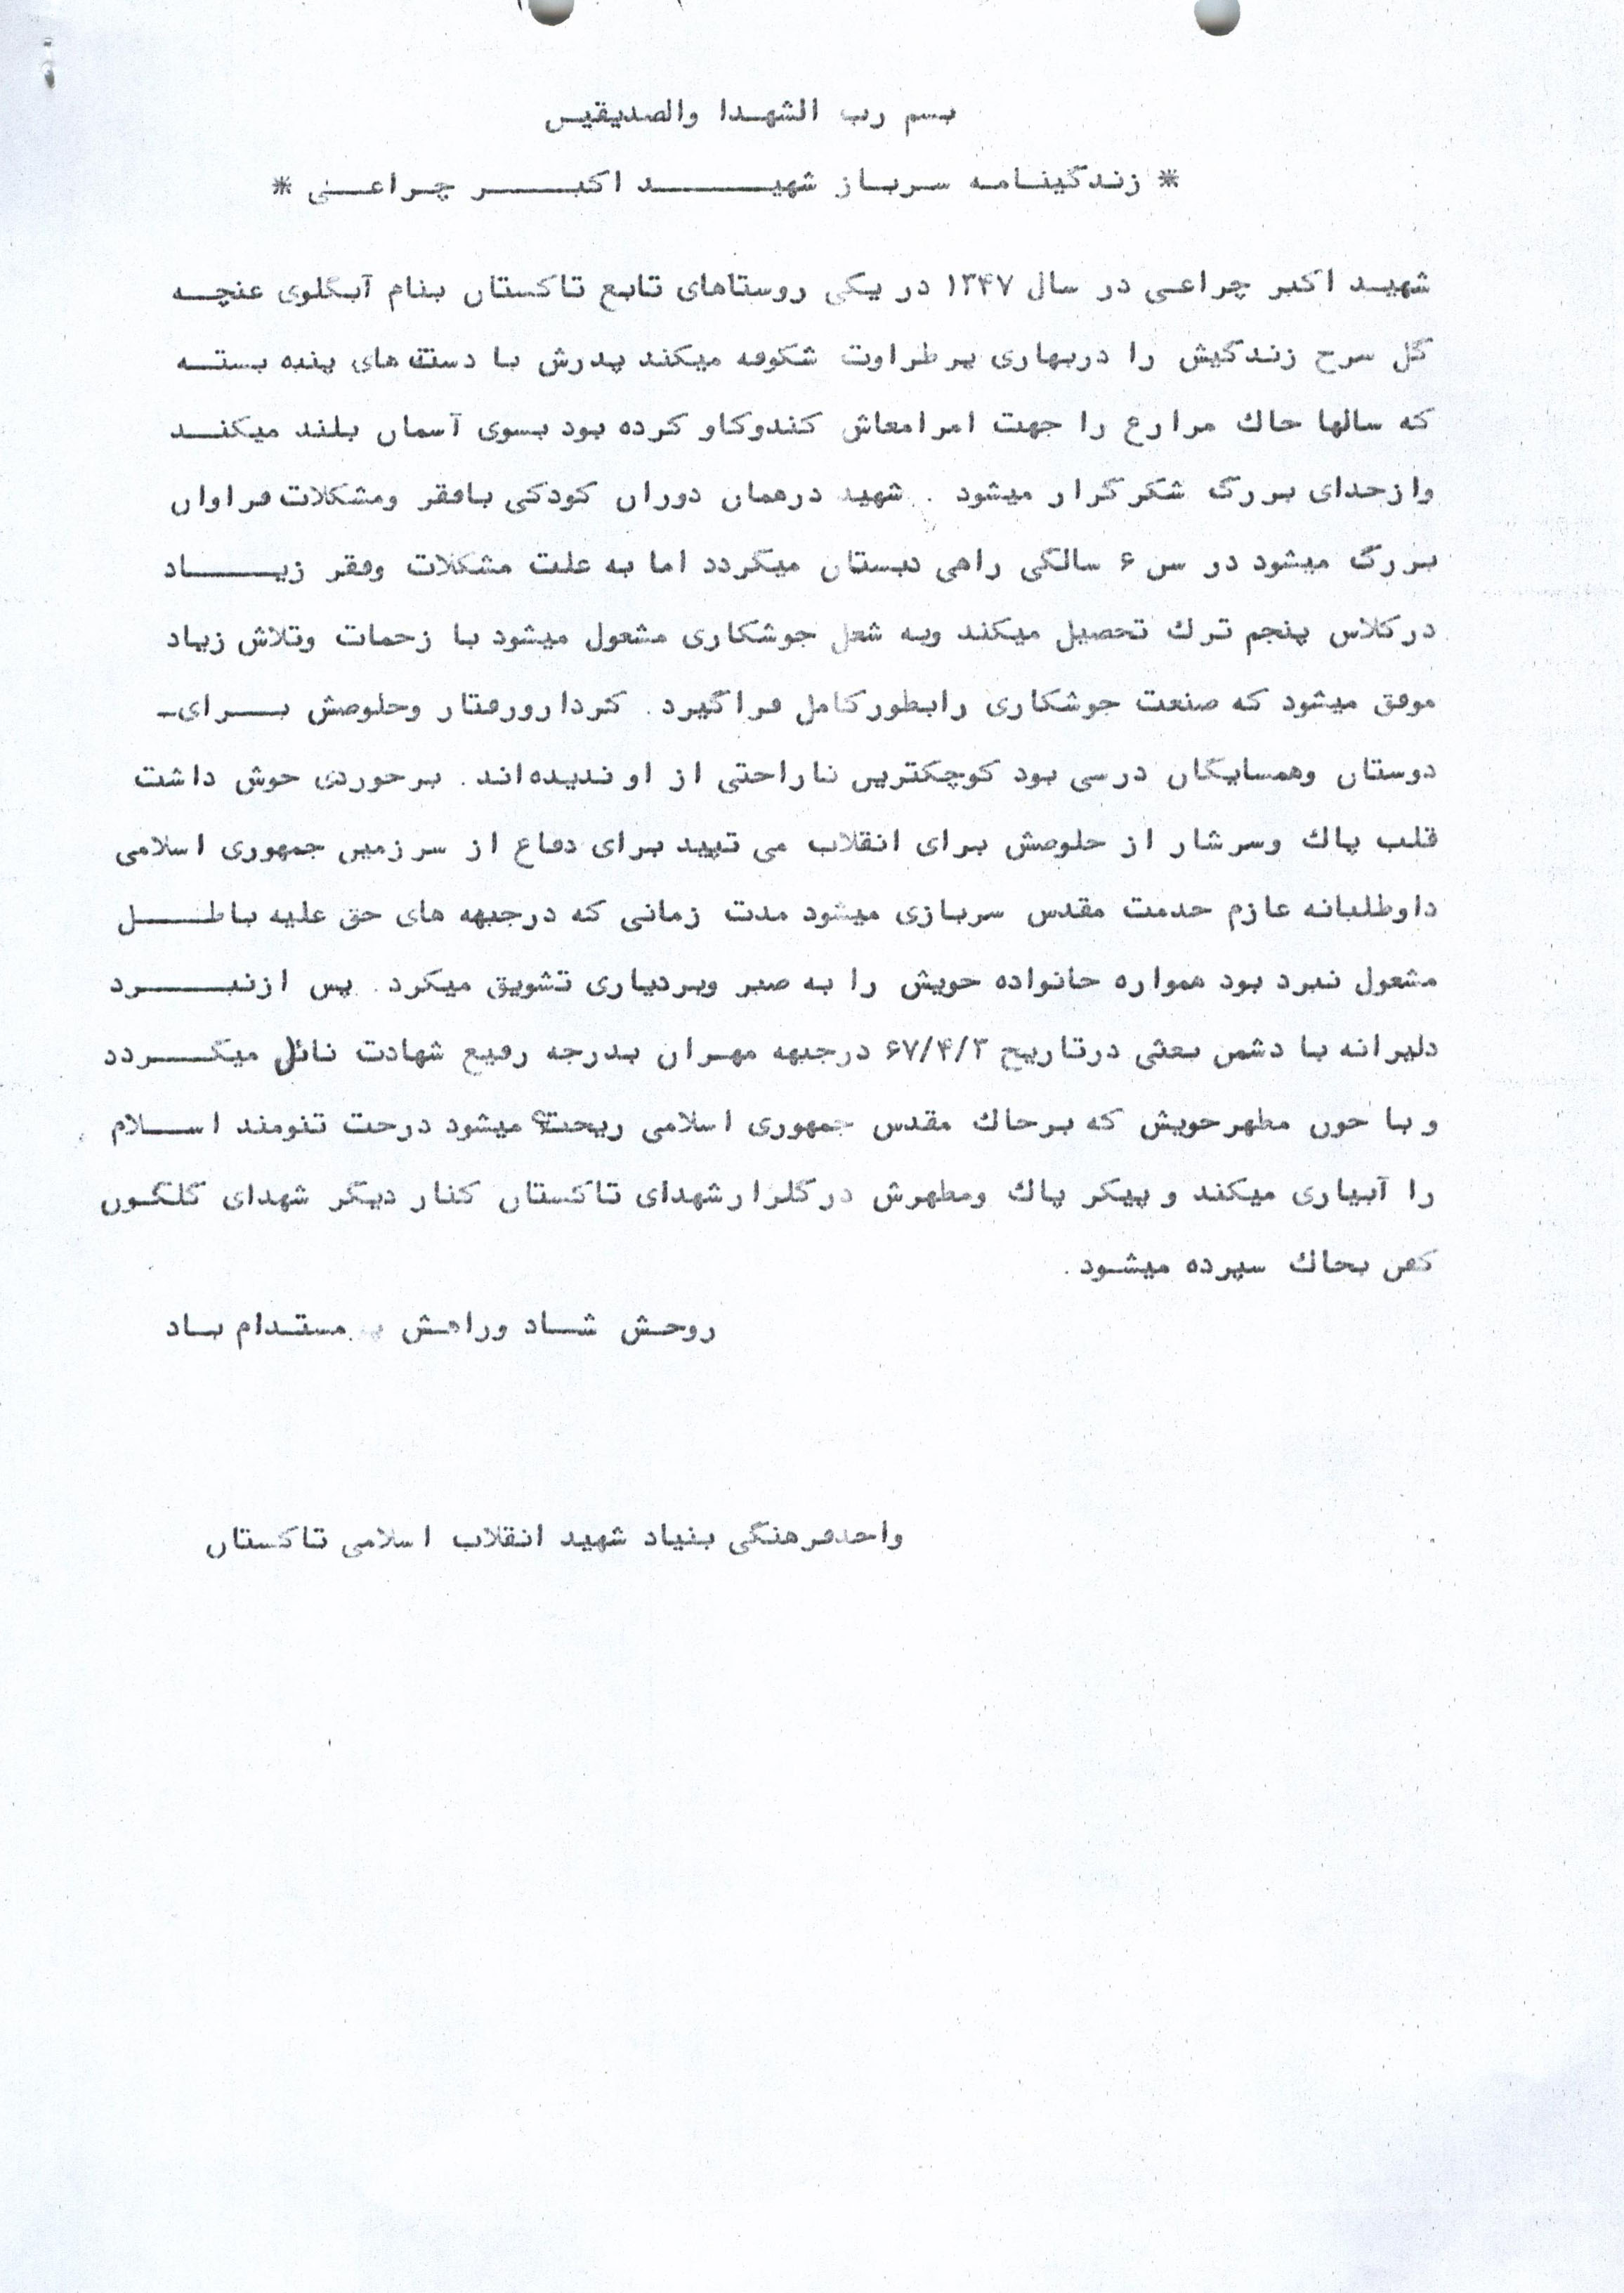 بسم رب الشهدا والصدیقین
* زندگینامه سرباز شهید اکبر چراغی *
شهید اکبر چراغی در سال ۱۳۴۷ در یکی روستاهای تابع تاکستان بنام آبگلوی غنچه
گل سرخ زندگیش را دربهاری پرطراوت شکوفه میکند پدرش با دسته های پینه بسته
که سالها خاک مزارع را جهت امرامعاش کندوکاو کرده بود بسوی آسمان بلند میکند
وازخدای بزرگ شکرگزار میشود . شهید درهمان دوران کودکی بافقر ومشکلات فراوان
بزرگ میشود در سن ۶ سالگی راهی دبستان میگردد اما به علت مشکلات وفقر زیاد
درکلاس پنجم ترک تحصیل میکند وبه شغل جوشکاری مشغول میشود با زحمات وتلاش زیاد
موفق میشود که صنعت جوشکاری رابطورکامل فراگیرد . کردارورفتار وخلوصش برای-
دوستان وهمسایگان درسی بود کوچکترین ناراحتی از او ندیده‌اند . برخوردی خوش داشت
قلب پاک وسرشار از خلوصش برای انقلاب می تپید برای دفاع از سرزمین جمهوری اسلامی
داوطلبانه عازم خدمت مقدس سربازی میشود مدت زمانی که درجبهه های حق علیه باطل
مشغول نبرد بود همواره خانواده خویش را به صبر وبردباری تشویق میکرد . پس ازنبرد
دلیرانه با دشمن بعثی درتاریخ ۶۷/۴/۳ درجبهه مهران بدرجه رفیع شهادت نائل میگردد
و با خون مطهرخویش که برخاک مقدس جمهوری اسلامی ریخته میشود درخت تنومند اسلام
را آبیاری میکند و پیکر پاک ومطهرش درگلزارشهدای تاکستان کنار دیگر شهدای گلگون
کفن بخاک سپرده میشود .
روحش شاد وراهش مستدام باد
واحدفرهنگی بنیاد شهید انقلاب اسلامی تاکستان